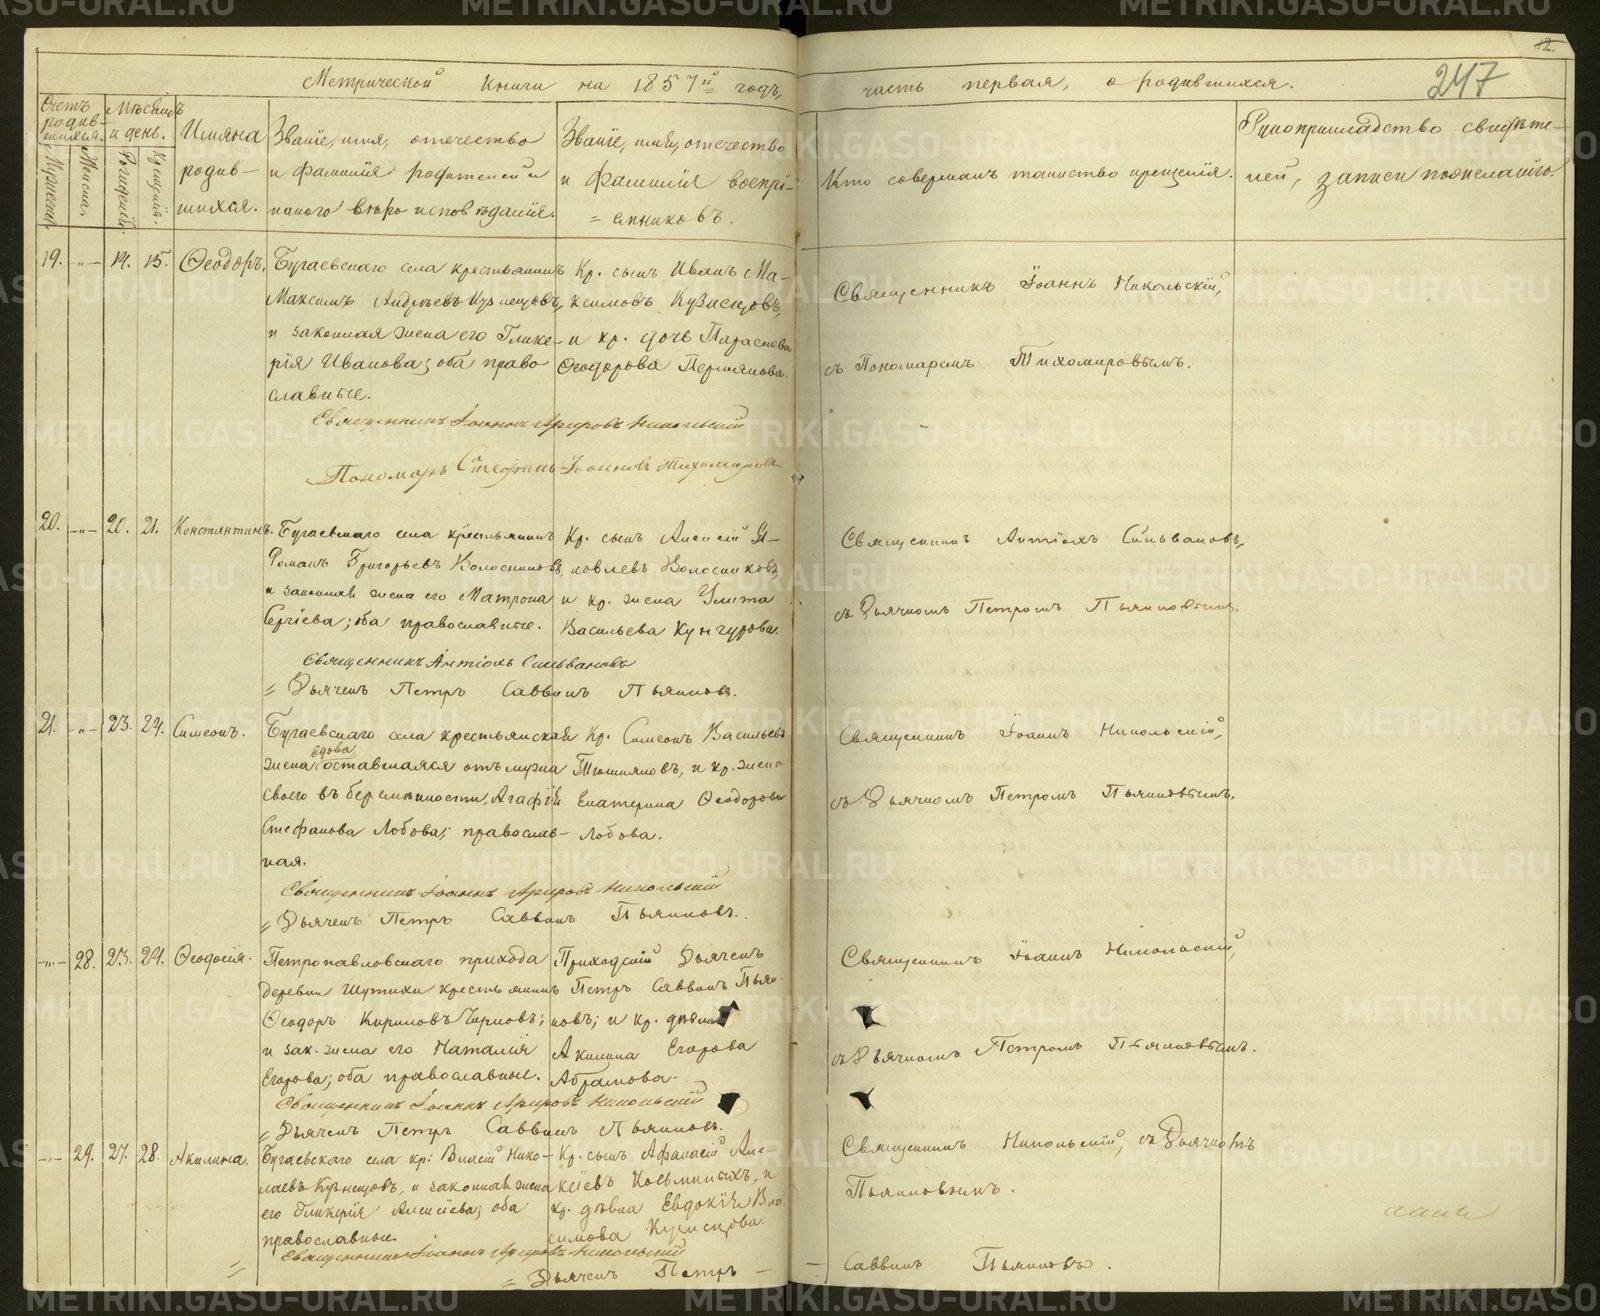 Метрической книги на 1857й годъ,
часть первая, о родившихся.
12.
247
Счетъ родив-
шихся.
Мѣсяцъ
и день.
Мужескій.
Женска.
Рожденія.
Крещенія.
Имяна
родив-
шихся.
Званіе, имя, отечество
и фамилія родителей и
какого вѣроисповѣданія.
Званіе, имя, отечество
и фамилія воспрі-
= емниковъ.
Кто совершалъ таинство крещенія.
Рукоприкладство свидѣте-
лей, записи по желанію.
19. -"- 14. 15. Ѳеодоръ.
Бугаевскаго села крестьянинъ
Максимъ Андреевъ Кузнецовъ,
и законная жена его Глике-
рія Иванова; оба право
славные.
Кр. сынъ Иванъ Ма-
ксимовъ Кузнецовъ,
и кр. дочь Параскева
Ѳеодорова Пермякова.
Священникъ Іоаннъ Никольскій,
съ Пономаремъ Тихомировымъ.
Священникъ Іоаннъ Никольскій
Пономарь Стефанъ Іоанновъ Тихомировъ
20. -"- 20. 21. Константинъ.
Бугаевскаго села крестьянинъ
Романъ Григорьевъ Колосниковъ,
и законная жена его Матрона
Сергіева; оба православные.
Кр. сынъ Алексій Я-
ковлевъ Колосниковъ,
и кр. жена Улита
Васильева Кунгурова.
Священникъ Антіохъ Сильвановъ,
съ Дьячкомъ Петромъ Пьянковымъ.
Священникъ Антіохъ Сильвановъ
= Дьячекъ Петръ Саввинъ Пьянковъ.
21. -"- 23. 24. Симеонъ.
Бугаевскаго села крестьянская
вдова
жена оставшаяся отъ мужа
своего въ беременности, Агафія
Стефанова Лобова; православ-
ная.
Кр. Симеонъ Васильевъ
и кр. жена
Екатерина Ѳеодорова
Лобова.
Священникъ Іоаннъ Никольскій,
съ Дьячкомъ Петромъ Пьянковымъ.
Священникъ Іоаннъ Никольскій
= Дьячекъ Петръ Саввинъ Пьянковъ.
-"- 28. 23. 24. Ѳеодосія.
Петропавловскаго прихода
деревни Шутихи крестьянинъ
Ѳеодоръ Кириловъ Чирковъ;
и зак. жена его Наталія
Егорова; оба православные.
Приходскій Дьячекъ
Петръ Саввинъ Пьян-
ковъ; и кр.
Акилина Егорова
Абрамова.
Священникъ Іоаннъ Никольскій,
съ Дьячкомъ Петромъ Пьянковымъ.
Священникъ Іоаннъ Никольскій
= Дьячекъ Петръ Саввинъ Пьянковъ.
-"- 29. 27. 28. Акилина.
Бугаевскаго села кр: Власій Нико-
лаевъ Кузнецовъ, и законная жена
его Гликерія Алексіева; оба
православные.
Кр. сынъ Афанасій Але-
ксіевъ Косьминыхъ, и
кр. дѣвка Евдокія
Кузнецова.
Священникъ Никольскій, съ Дьячкомъ
Пьянковымъ.
Священникъ Іоаннъ Никольскій
= Дьячекъ Петръ —
Саввинъ Пьянковъ.
METRIKI.GASO-URAL.RU